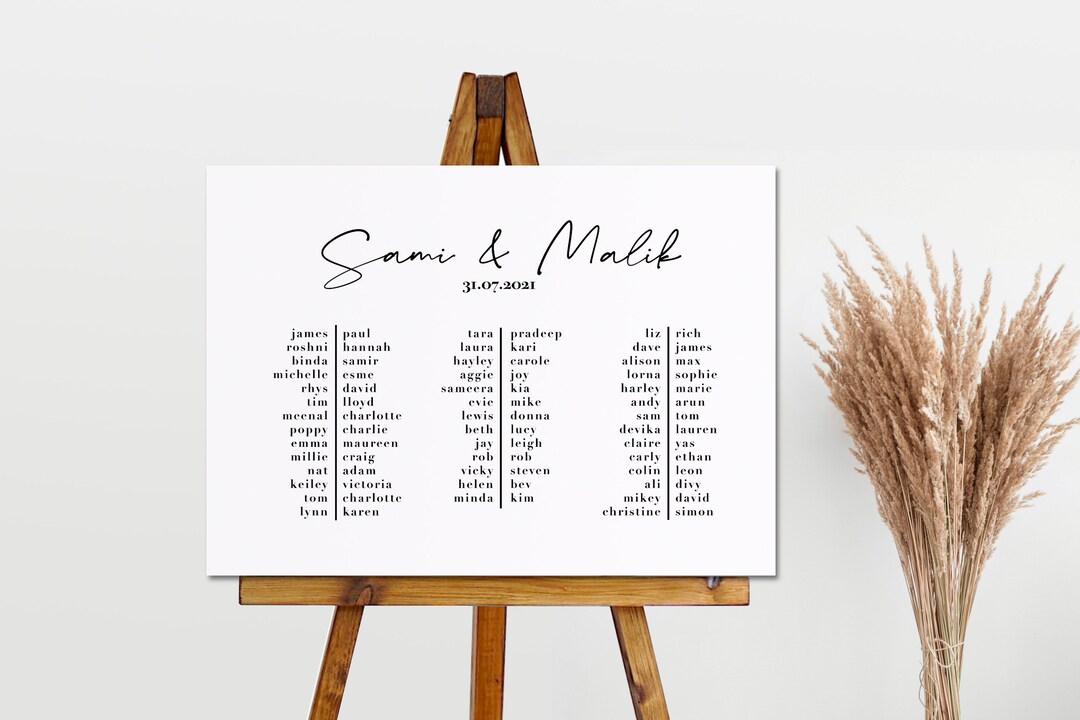 Sami & Malik
31.07.2021
james paul
roshni hannah
binda samir
michelle esme
rhys david
tim lloyd
meenal charlotte
poppy charlie
emma maureen
millie craig
nat adam
keiley victoria
tom charlotte
lynn karen
tara pradeep
laura kari
hayley carole
aggie joy
sameera kia
evie mike
lewis donna
beth lucy
jay leigh
rob rob
vicky steven
helen bev
minda kim
liz rich
dave james
alison max
lorna sophie
harley marie
andy arun
sam tom
devika lauren
claire yas
carly ethan
colin leon
ali divy
mikey david
christine simon